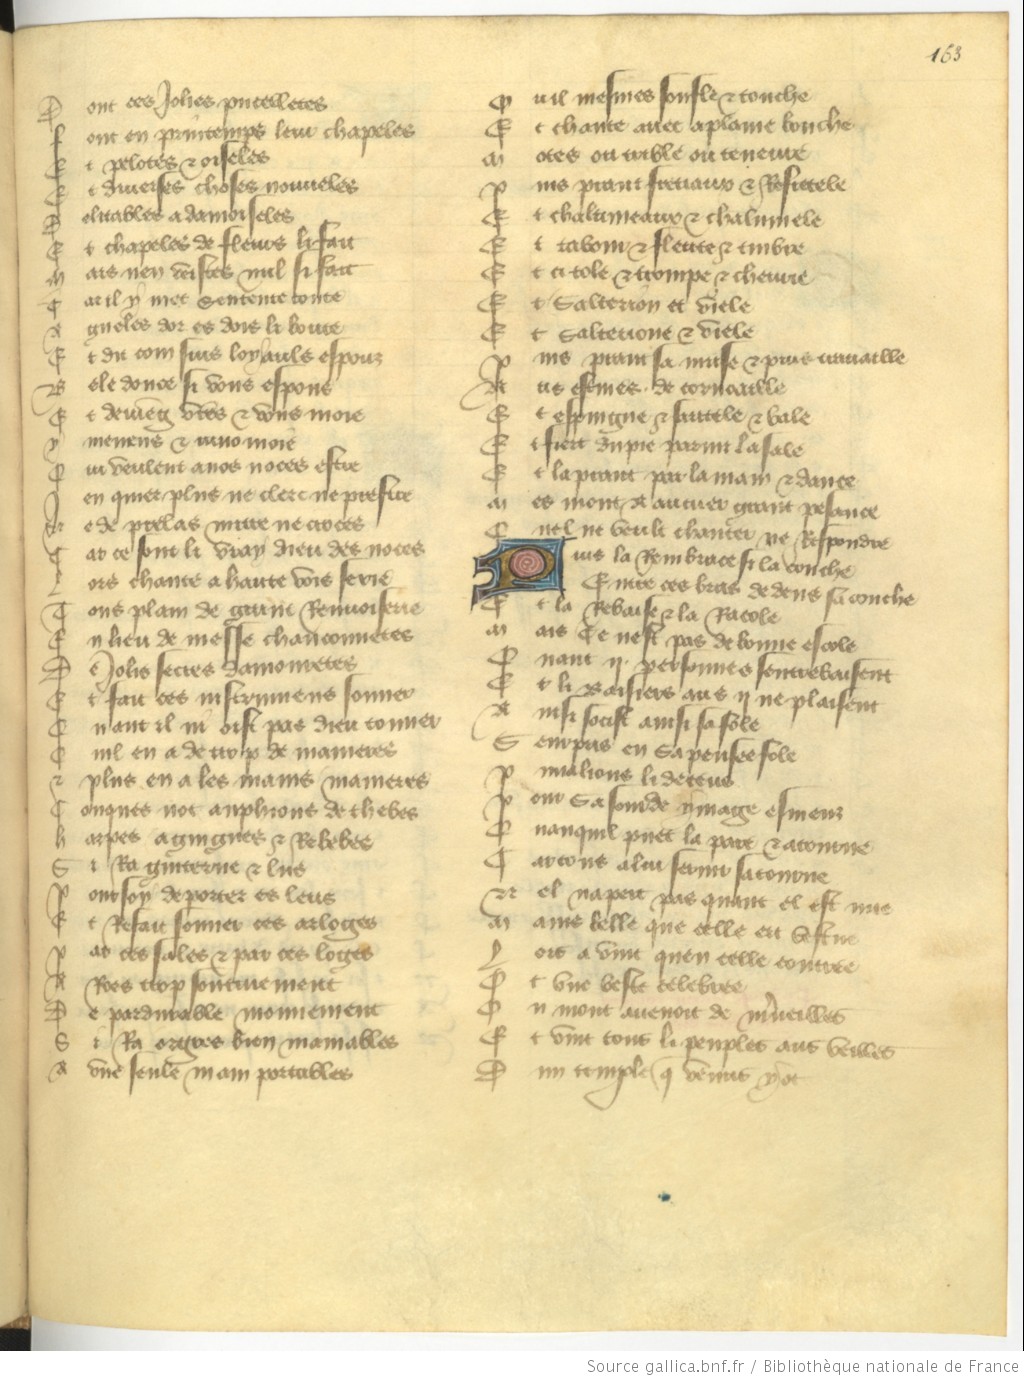 163
Dont ces Jolies pucelletes
Font en printemps leur chapeles
Et pelotes & oiseles
Et diuerses choses nouueles
Delitables a damoiseles
Et chapeles de fleurs li fait
Mais nen veistes nul si fait
Car il y met sentente toute
Agneles dor es dois li boute
Et dit com fins loyauls espouz
Bele douce si vous espous
Et deuieng vostres & vous moie
Ymeneus & iuno moie
Qui veulent a nos noces estre
Je nen quier plus ne clerc ne prestre
Ne de prelas mitre ne croces
Car ce sont li vray dieu des noces
Lors chante a haulte vois serie
Tous plain de grant Renuoiserie
En lieu de messe chanconnetes
De Jolis secres damouretes
Et fait ces instrumens sonner
Quant il ni oist pas dieu tonner
Quil en a de trop de manieres
Et plus en a les mains manieres
Conques not anphions de thebes
Harpes a gingues & Rebebes
Si Ra guiterne & lus
Pour soy deporter es leus
Et Refait sonner ces orloges
Par ces sales & par ces loiges
A Roes trop soutiuement
De pardurable mouuement
Si Ra orgues bien maniables
A vne seule main portables
Quil mesmes soufle & touche
Et chante auec a plaine bouche
Motes ou treble ou teneure
Puis prant fretiaux & Refretele
Et chalumeaux & chalumele
Et tabour & fleute & timbre
Et citole & trompe & cheurie
Et Salterion et viele
Et Salterione & viele
Puis prant sa muse & puis trauaille
Aus estiues de cornoaille
Et espingue & sautele & bale
Et fiert du pie parmi la sale
Et la prant par la main & dance
Mes mont a au cuer grant pesance
Quel ne veult chanter ne Respondre
Puis la Rembrace si la couche
Entre ces bras dedens sa couche
Et la Rebaise & la Racole
Mais Ce nest pas de bonne escole
Quant ij. personnes sentrebaisent
Et li Baisiers aus ij ne plaisent
Ainsi socist ainsi safole
Seurpris en Sa pensee fole
Pimalions li deceus
Pour Sa sourde ymage esmeuz
Quanquil puet la pare & atourne
Car tous a lui seruir satourne
Nel napert pas quant el est nue
Mains belle que celle est vestue
Lors a vint quen celle contree
Ot vne feste celebree
Ou mont auenoit de merueilles
Et vint tous li peuples aus veilles
Dun temple que venus y ot